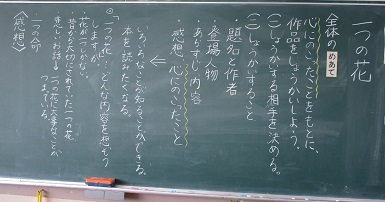 一つの花
全体の めあて
心にのこったことをもとに、
作品をしょうかいしよう。
㊀しょうかいする相手を決める。
㊁しょうかいすること
・題名と作者
・登場人物
・あらすじ・内容
・感想 心にのこったこと
↓
いろいろなことが知ることができる。
本を読みたくなる。
◎「一つの花」…どんな内容を想ぞう
しますか。
・花が一つしかない。
・昔から大切にされていた一つの花
・悲しいお話
一つの花に大事なことが
一つの命
〈感想〉